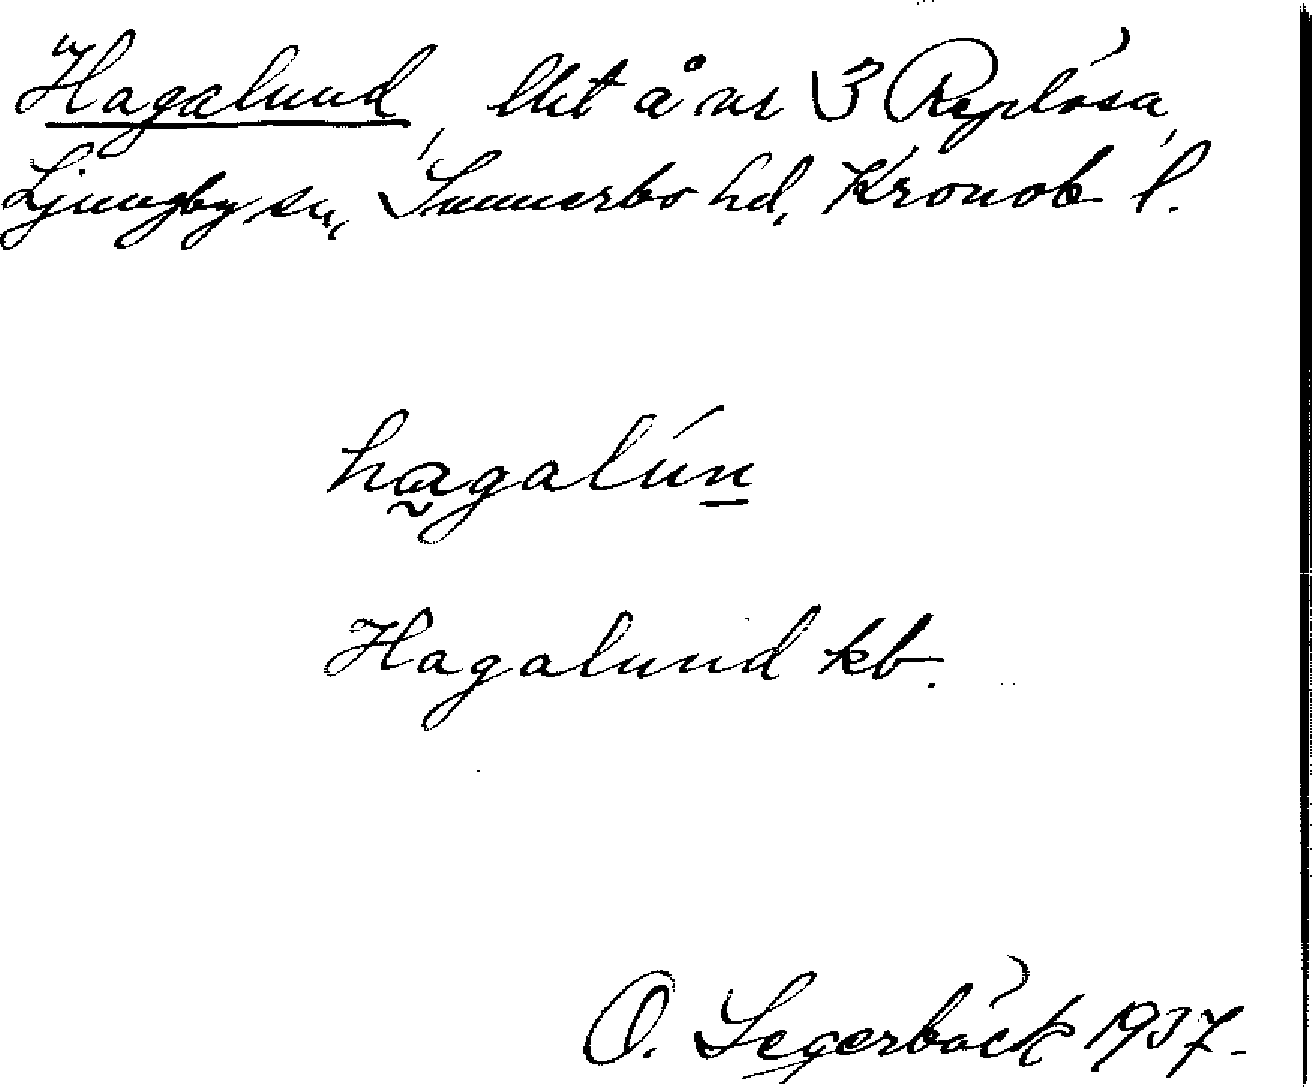 Hagalund, lht å nr 3 Replösa,
Ljungby sn, Sunnerbo hd, Kronob. l.
hagalún
Hagalund kb.
O. Segerbäck 1937.